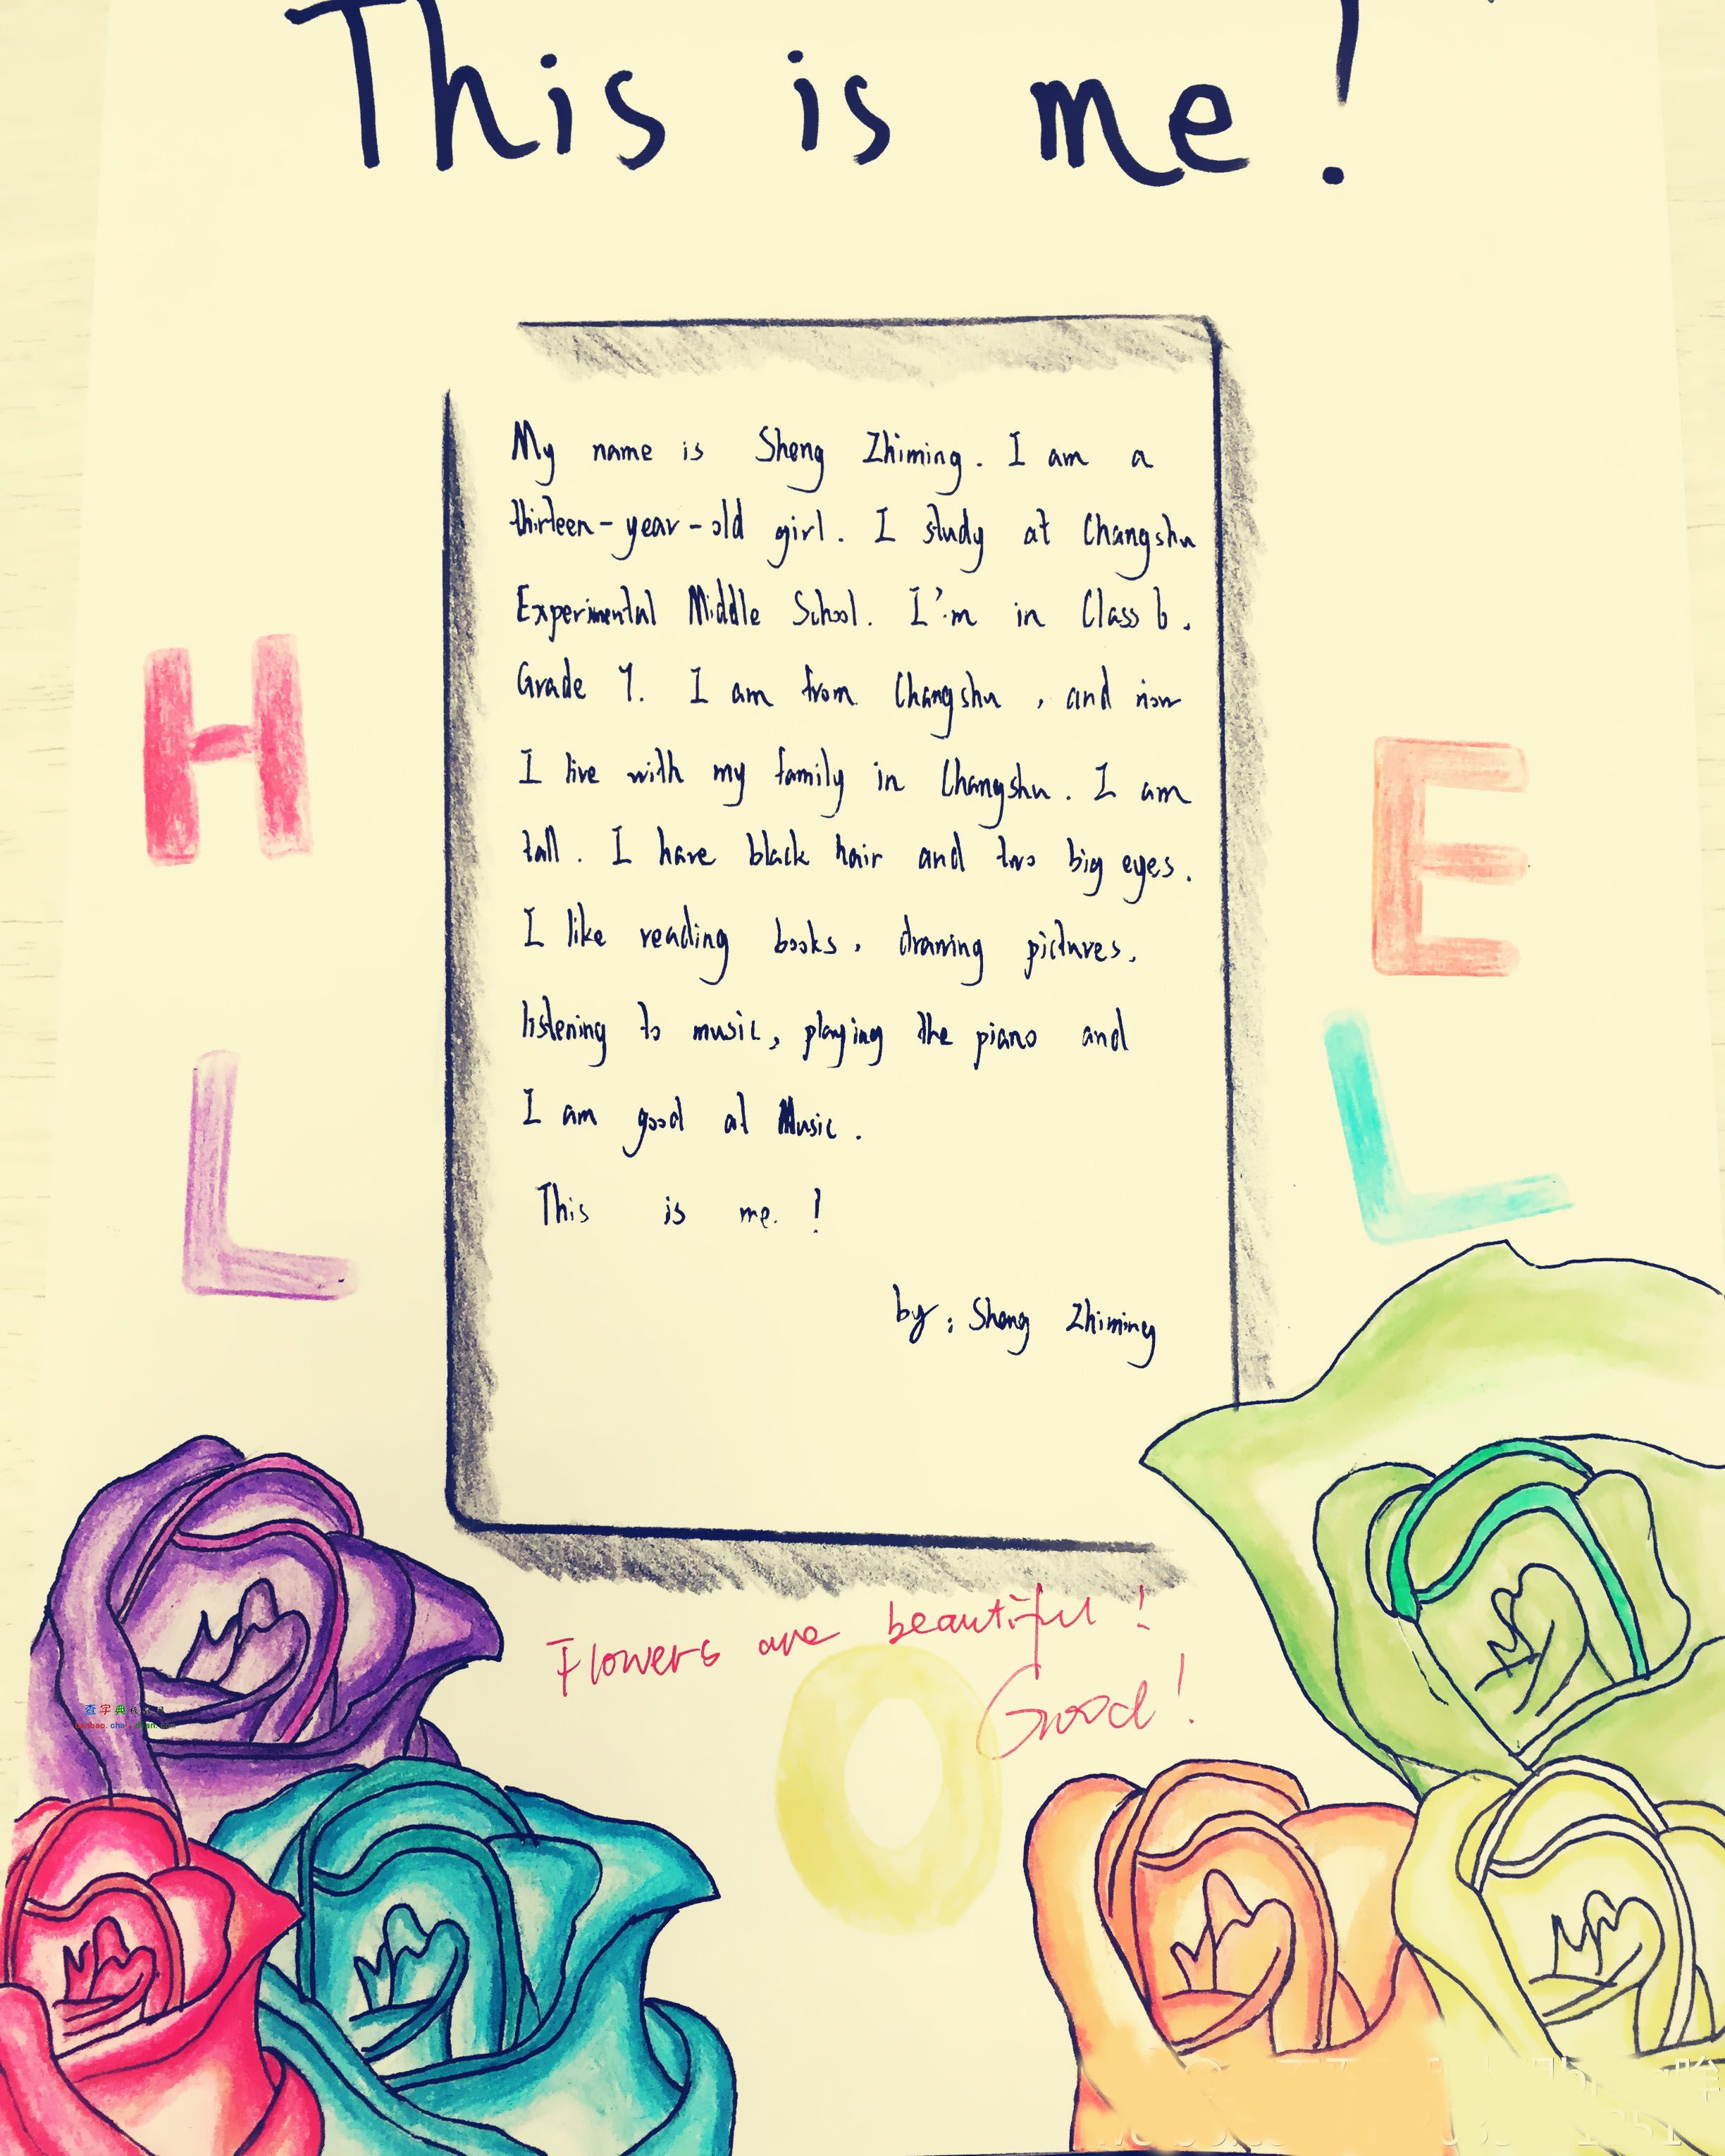 This is me!
My name is Sheng Zhiming. I am a
thirteen-year-old girl. I study at Changshu
Experimental Middle School. I'm in Class 6.
Grade 7. I am from Changshu, and now
I live with my family in Changshu. I am
tall. I have black hair and two big eyes.
I like reading books, drawing pictures,
listening to music, playing the piano and
I am good at Music.
This is me.!
by: Sheng Zhiming
H
E
L
L
O
Flowers are beautiful!
Good!
查字典